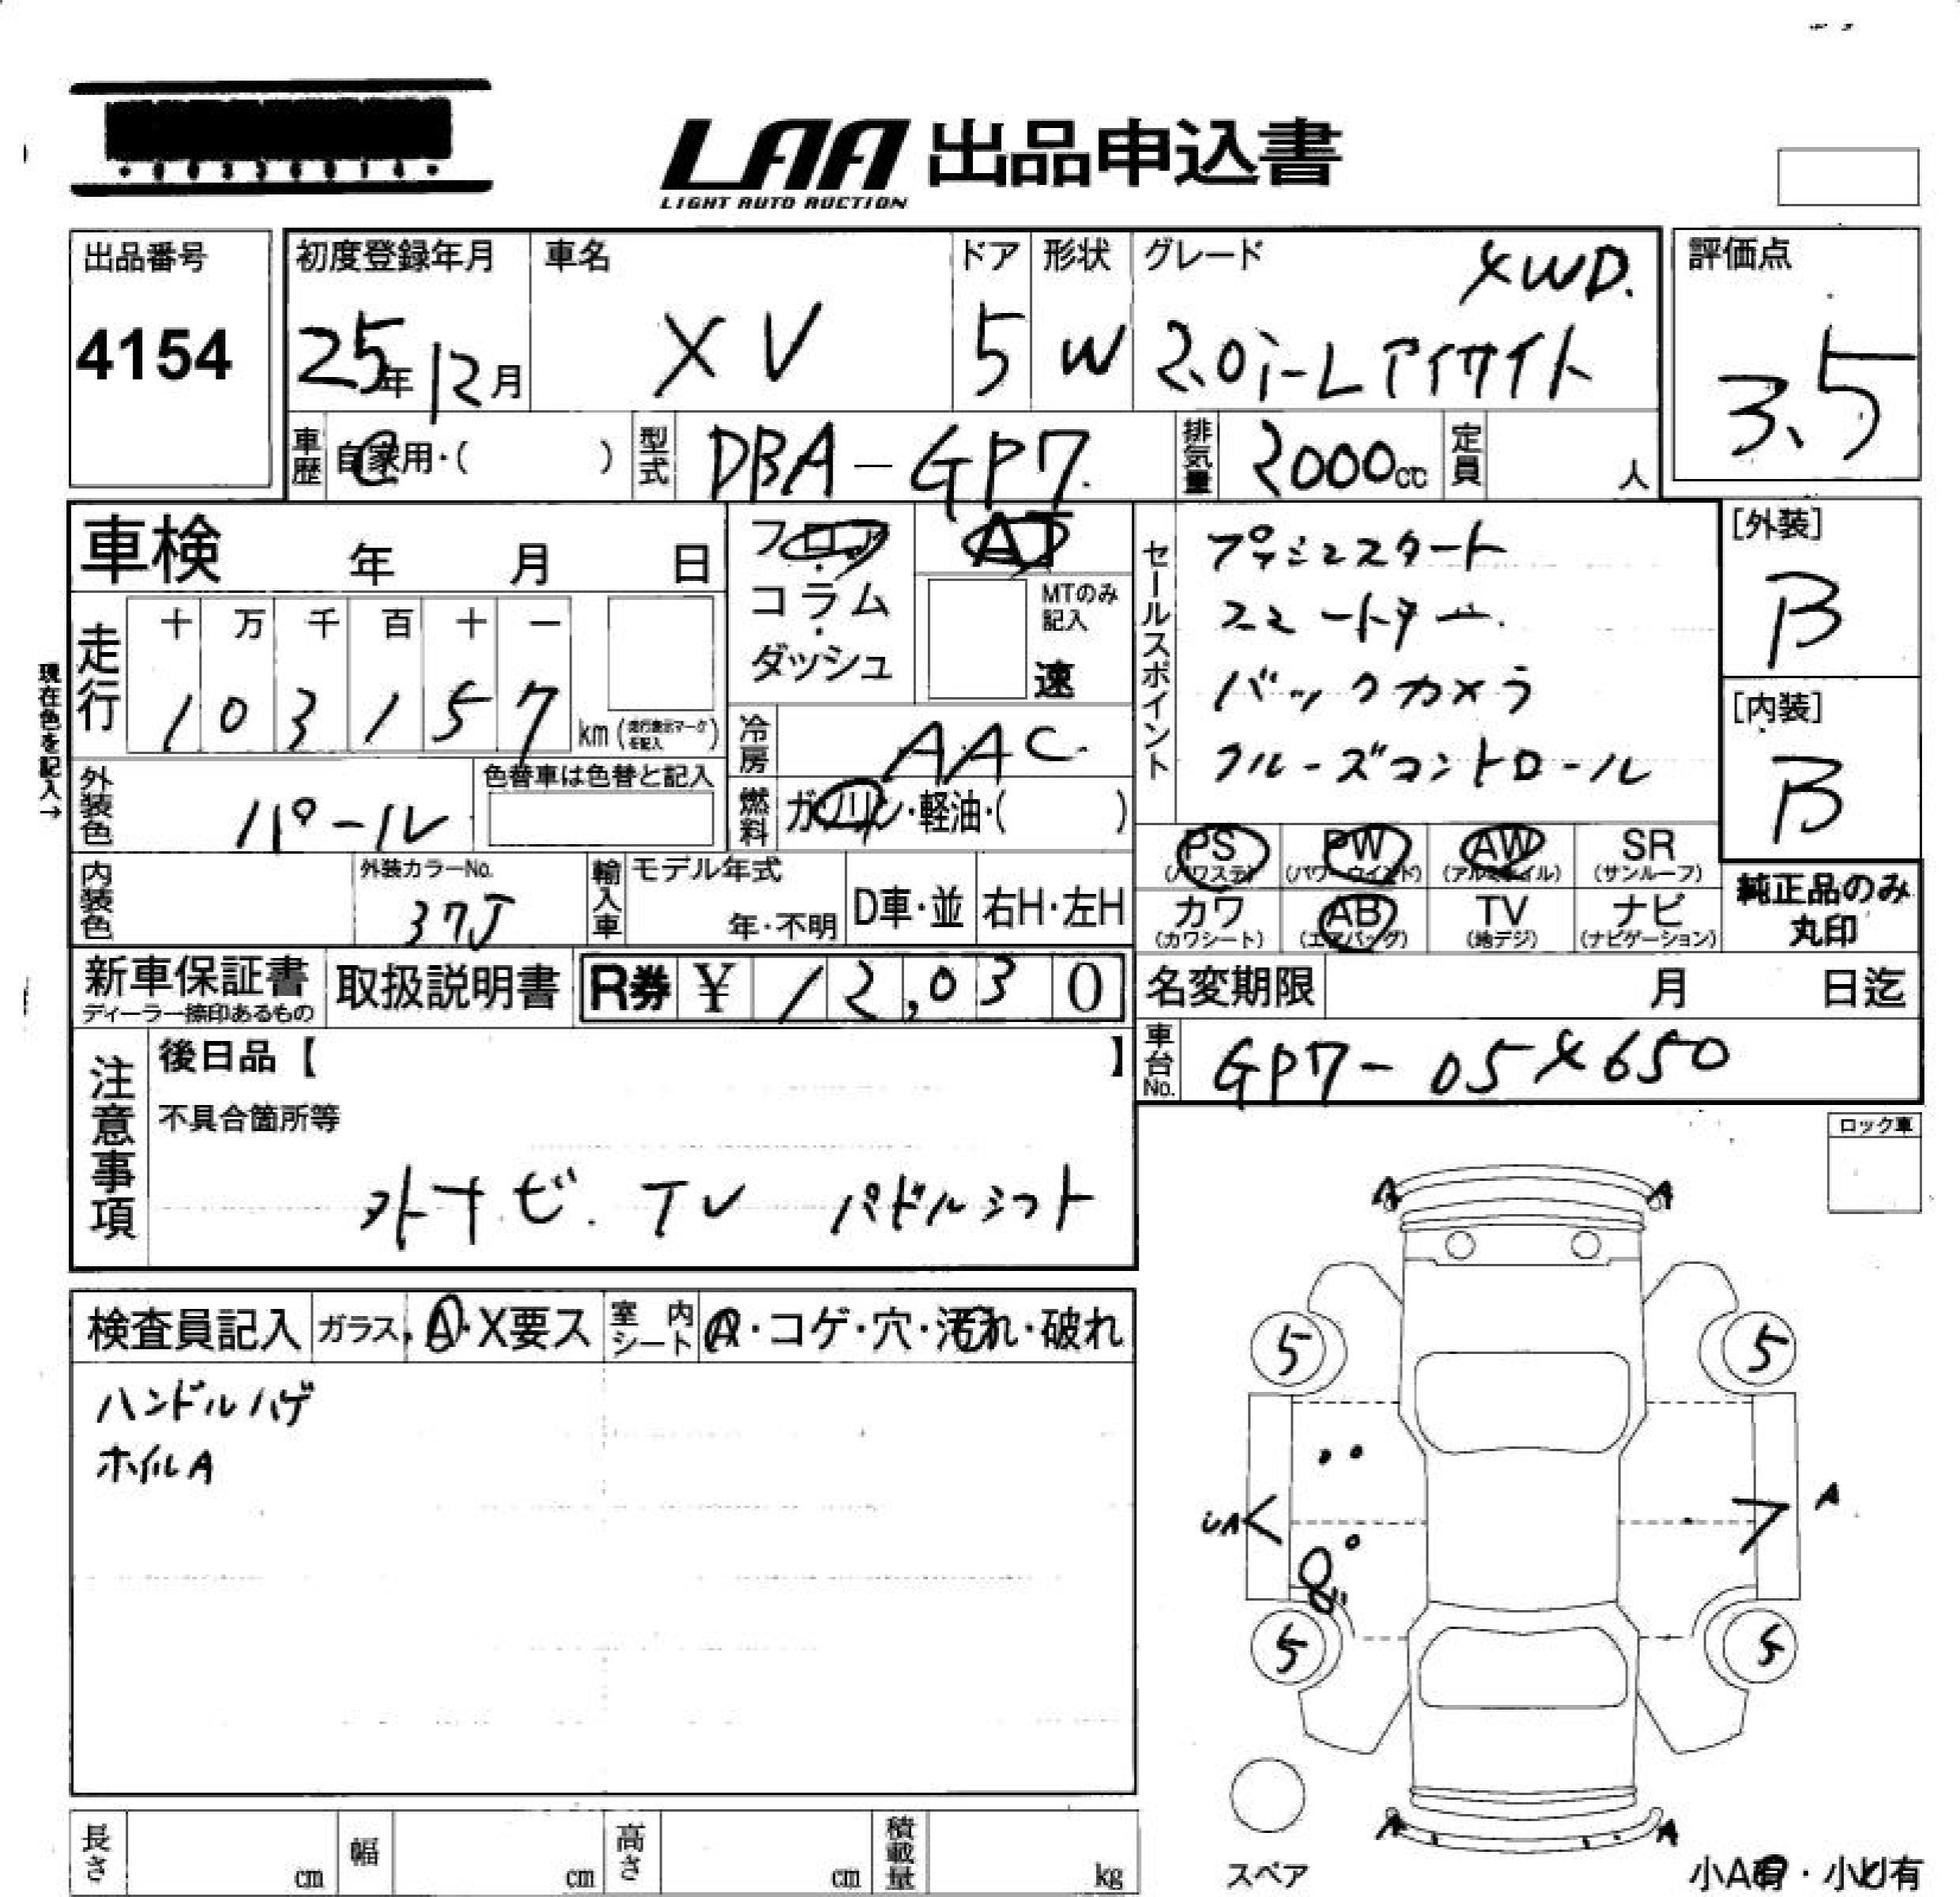 LAA 出品申込書
LIGHT AUTO AUCTION
出品番号
4154
初度登録年月
25年12月
車名
XV
ドア
5
形状
W
グレード
4WD.
2.0i-Lアイサイト
評価点
3.5
車歴
自家用・( )
型式
DBA-GP7
排気量
2000cc
定員
人
車検 年 月 日
フロア
・
コラム
・
ダッシュ
AT
MTのみ
記入
速
セールスポイント
プッシュスタート
スマートキー
バックカメラ
クルーズコントロール
[外装]
B
[内装]
B
現在色を記入→
走行
十 万 千 百 十 一
1 0 3 1 5 7
km(走行表示マークを記入)
冷房
AAC
外装色
パール
色替車は色替と記入
燃料
ガソリン・軽油・( )
PS
(パワステ)
PW
(パワーウインド)
AW
(アルミホイル)
SR
(サンルーフ)
カワ
(カワシート)
AB
(エアバッグ)
TV
(地デジ)
ナビ
(ナビゲーション)
純正品のみ
丸印
内装色
外装カラーNo.
37J
輸入車
モデル年式
年・不明
D車・並
右H・左H
新車保証書
ディーラー捺印あるもの
取扱説明書
R券 ¥ 12,030
名変期限 月 日迄
車台No.
GP7-054650
注意事項
後日品【 】
不具合箇所等
外ナビ. TV パドルシフト
ロック車
検査員記入
ガラス. A・X要ス
室内シート
A・コゲ・穴・汚れ・破れ
ハンドルハゲ
ホイルA
A
A
5
5
UA
A
5
5
A
A
スペア
小A有・小U有
長さ cm
幅 cm
高さ cm
積載量 kg